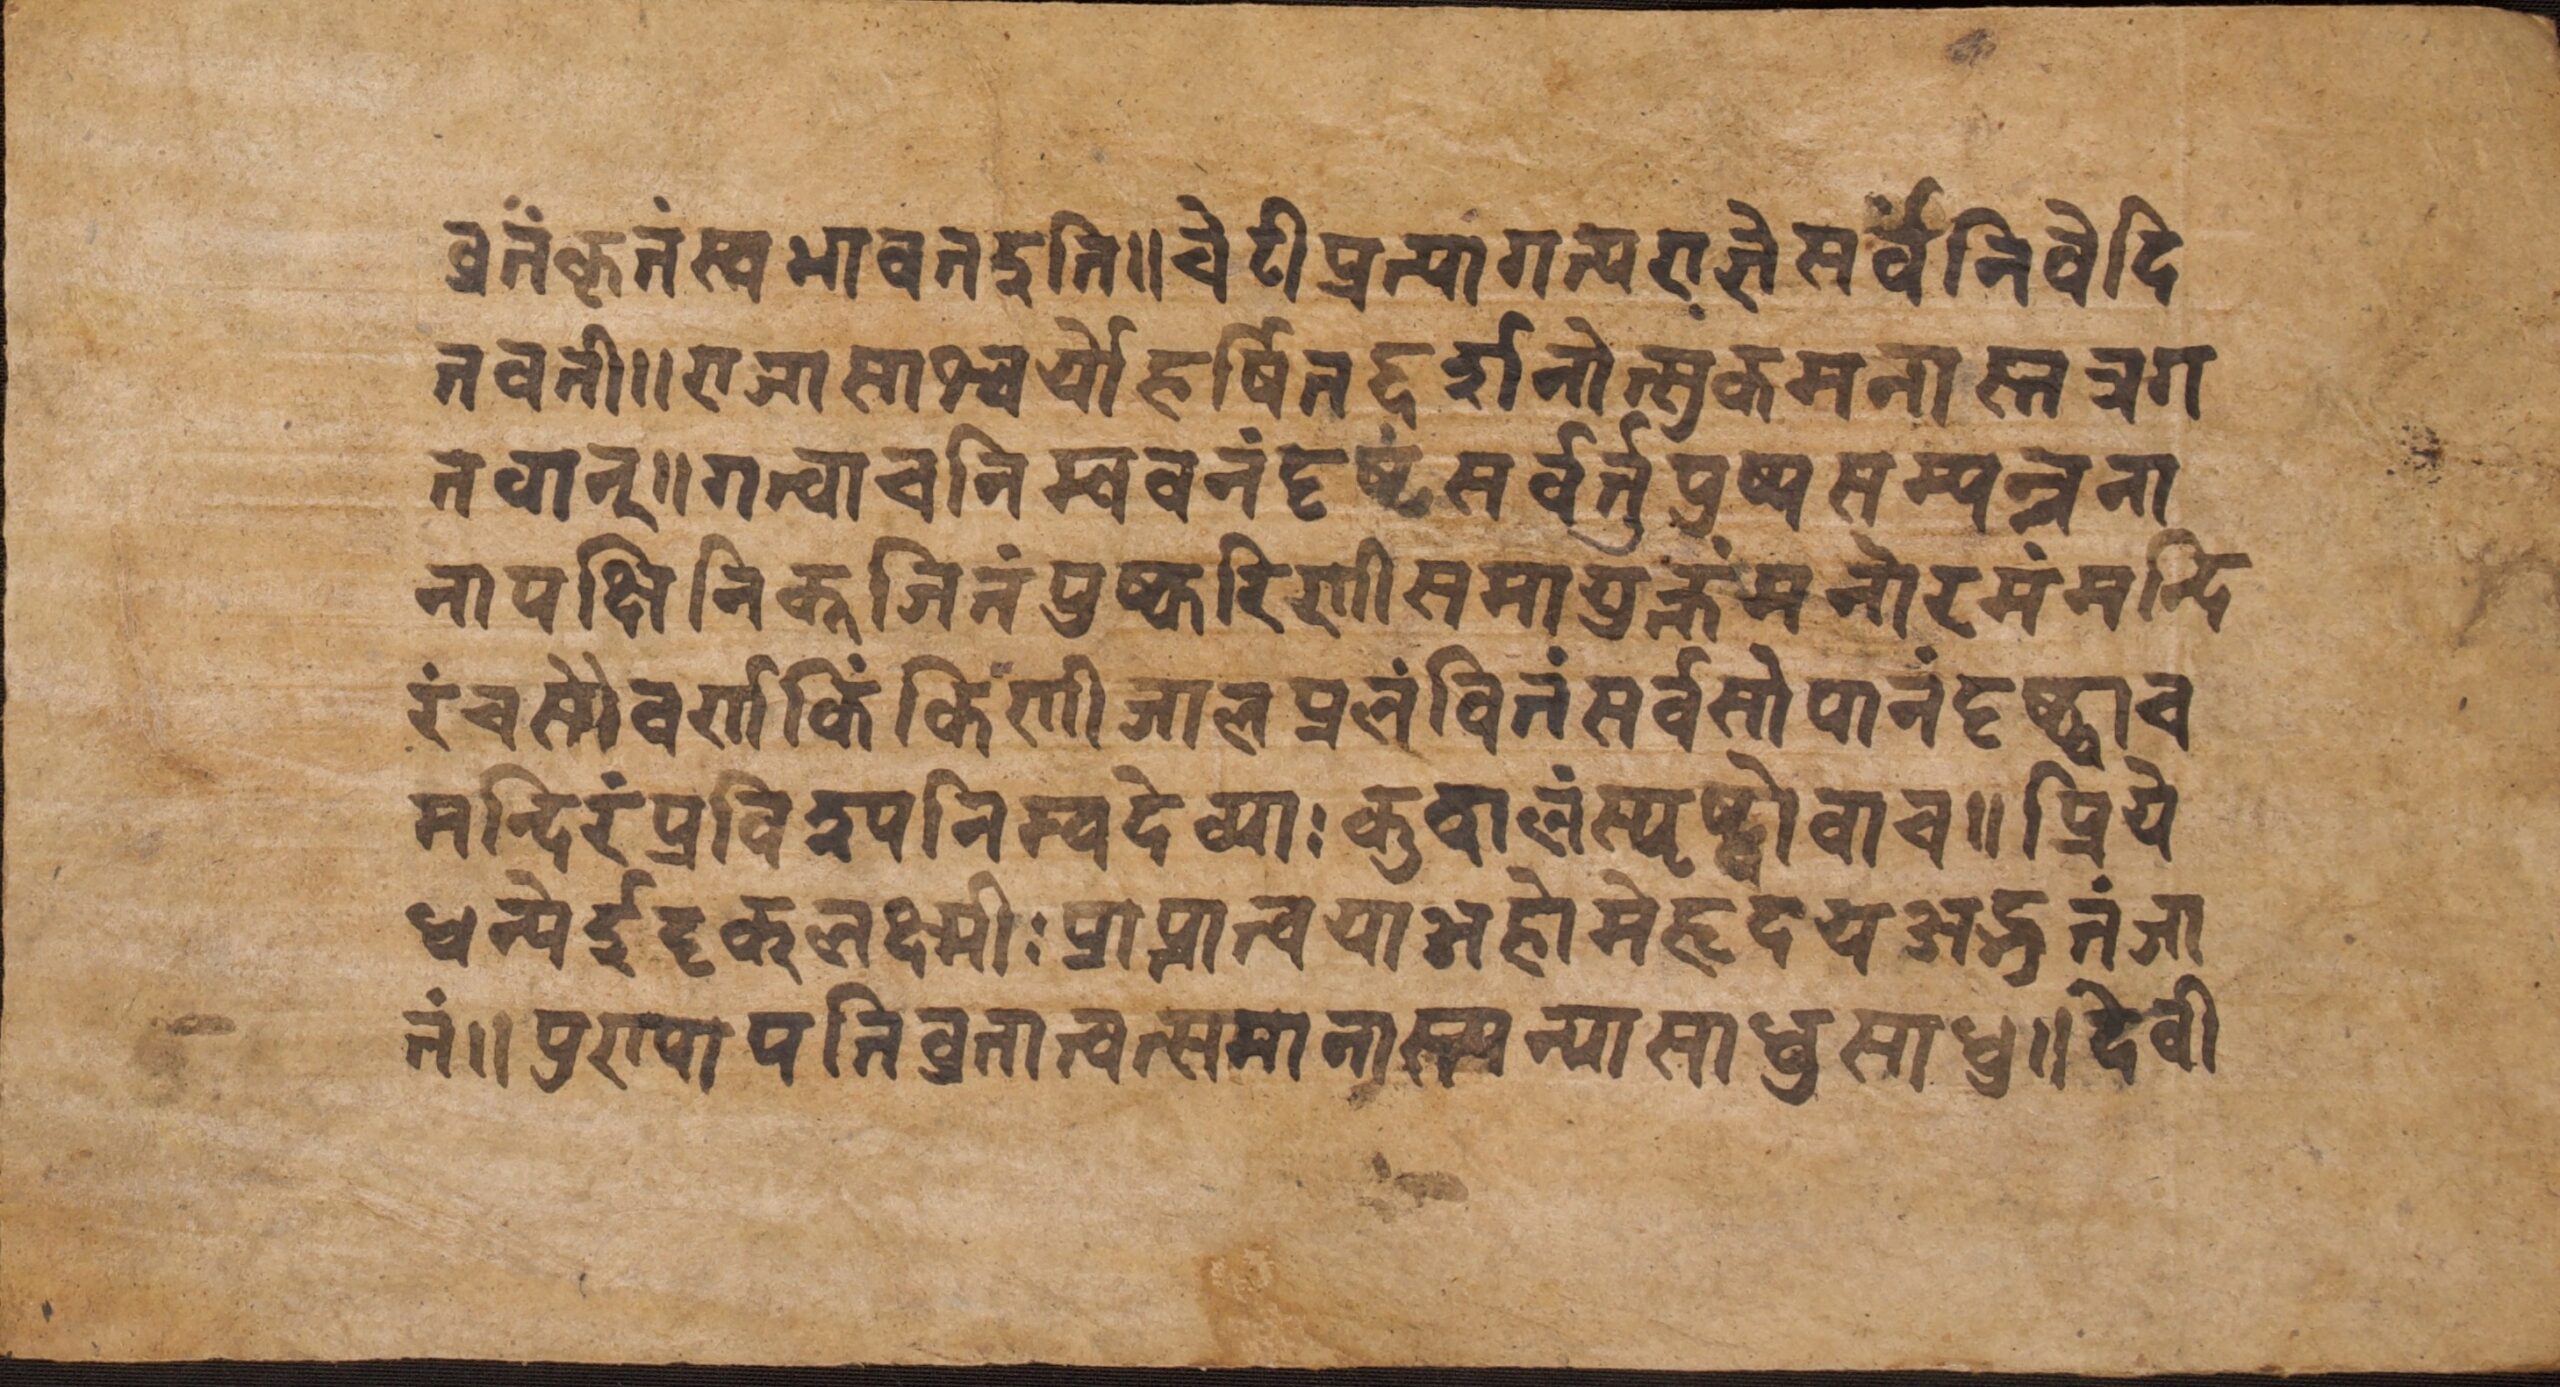 व्रतंकृतंस्वभावतद्दति॥चेटीप्रत्यागत्यराज्ञैसर्वंनिवेदि
तवती॥राजासाश्चर्योहर्षितद्दर्शनोत्सुकमनास्तत्रग
तवान्॥गत्वाचनिम्बवनंदृष्टंसर्वर्तुपुष्पसम्पन्नना
नापक्षिनिकूजितंपुष्करिणीसमायुक्तंमनोरमंमन्दि
रंचसौवर्णकिंकिंणीजालप्रलंवितंसर्वसोपानंदृष्ट्वाच
मन्दिरंप्रविश्यनिम्बदेव्याःकुवालंस्पृष्ट्वोवाच॥प्रिये
धन्येईदृक्लक्ष्मीःप्राप्तात्वयाअहोमेहृदयअद्भुतंजा
तं॥पुरापापतिव्रतात्वत्समानास्त्यन्यासाधुसाधु॥देवी